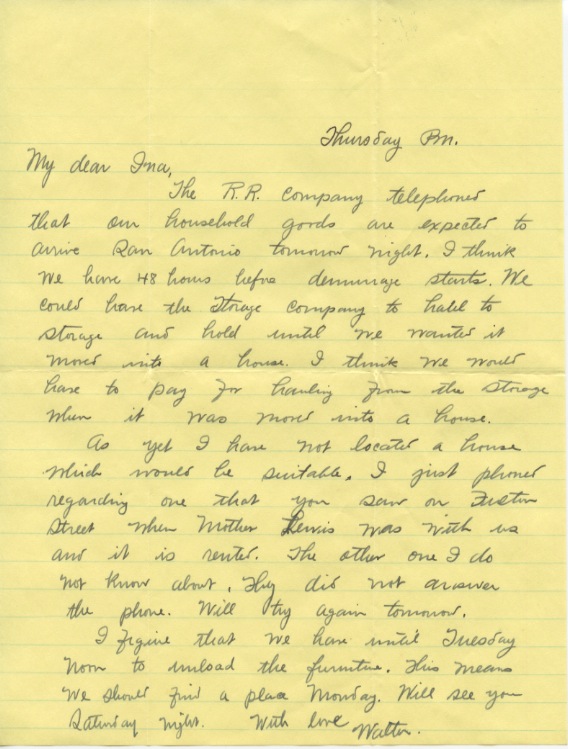 Thursday Pm.
My dear Ina,
The R.R. Company telephoned
that our household goods are expected to
arrive San Antonio tomorrow night. I think
we have 48 hours before demurrage starts. We
could have the Storage Company to
storage and hold until we wanted it
moved into a house. I think we would
have to pay for hauling from the storage
when it was moved into a house.
As yet I have not located a house
which would be suitable. I just phoned
regarding one that you saw on
Street when Mother Lewis was with us
and it is rented. The other one I do
not know about. They did not answer
the phone. Will try again tomorrow.
I figure that we have until Tuesday
noon to unload the furniture. This means
we should find a place Monday. Will see you
Saturday night. With love Walter.